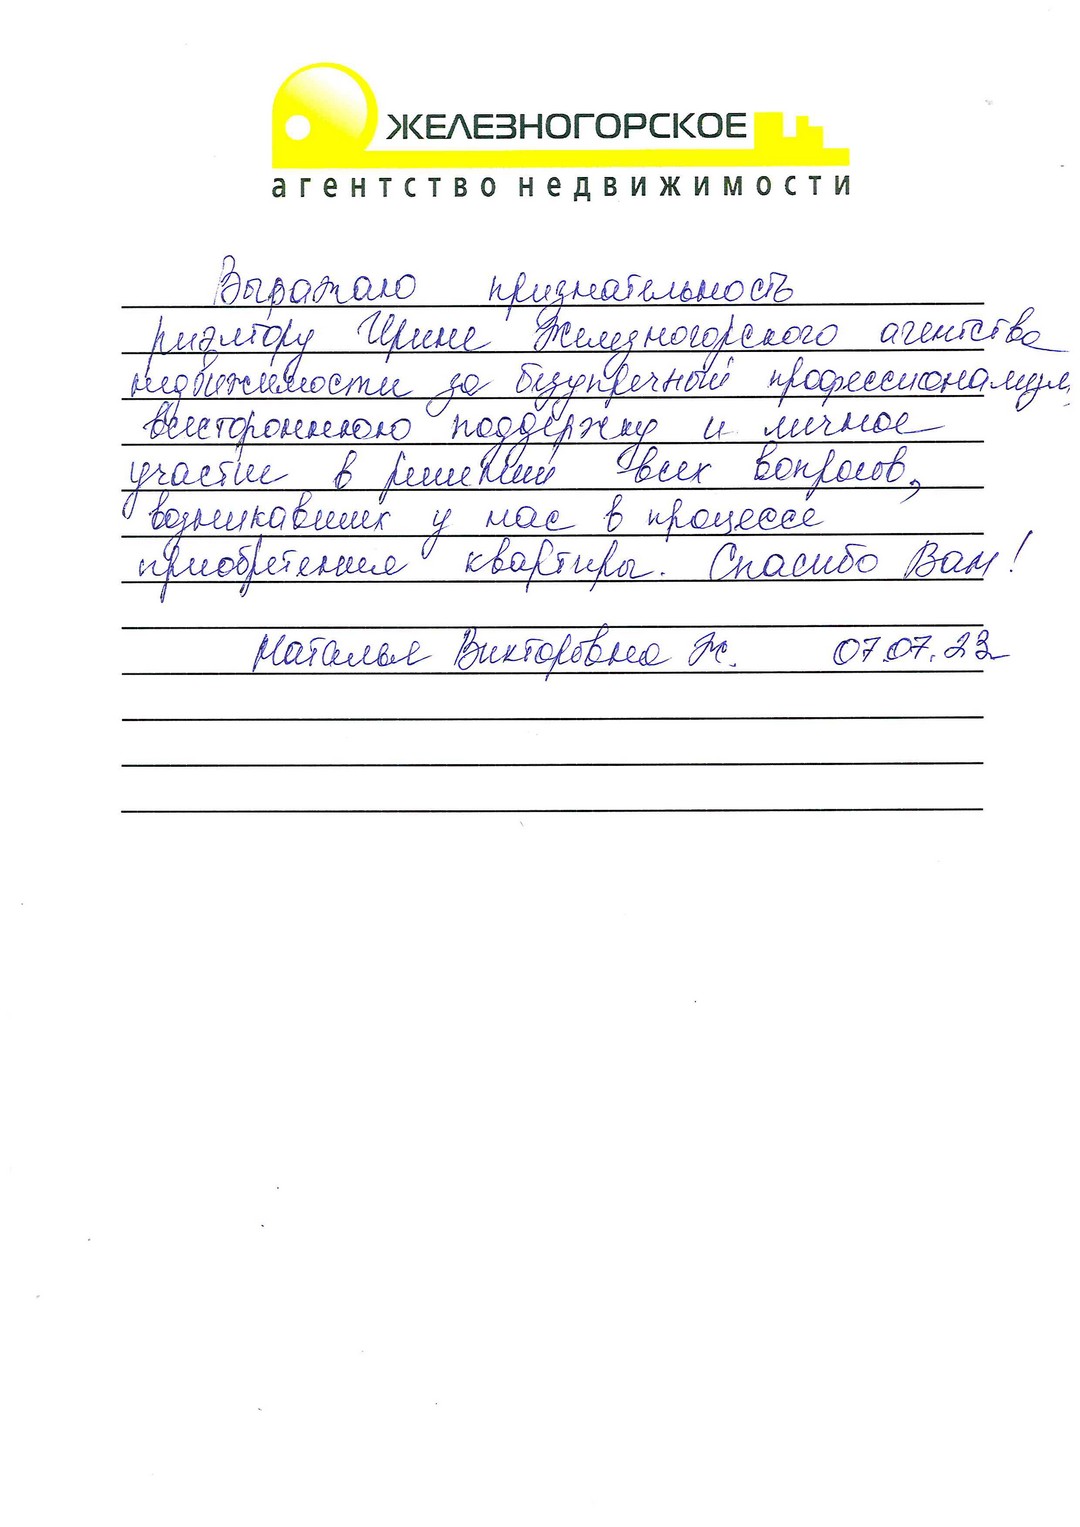 ЖЕЛЕЗНОГОРСКОЕ
агентство недвижимости
Выражаю признательность
риэлтору Ирине Железногорского агентства
недвижимости за безупречный профессионализм,
всестороннюю поддержку и личное
участие в решении всех вопросов,
возникавших у нас в процессе
приобретения квартиры. Спасибо Вам!
Наталья Викторовна Ж. 07.07.23